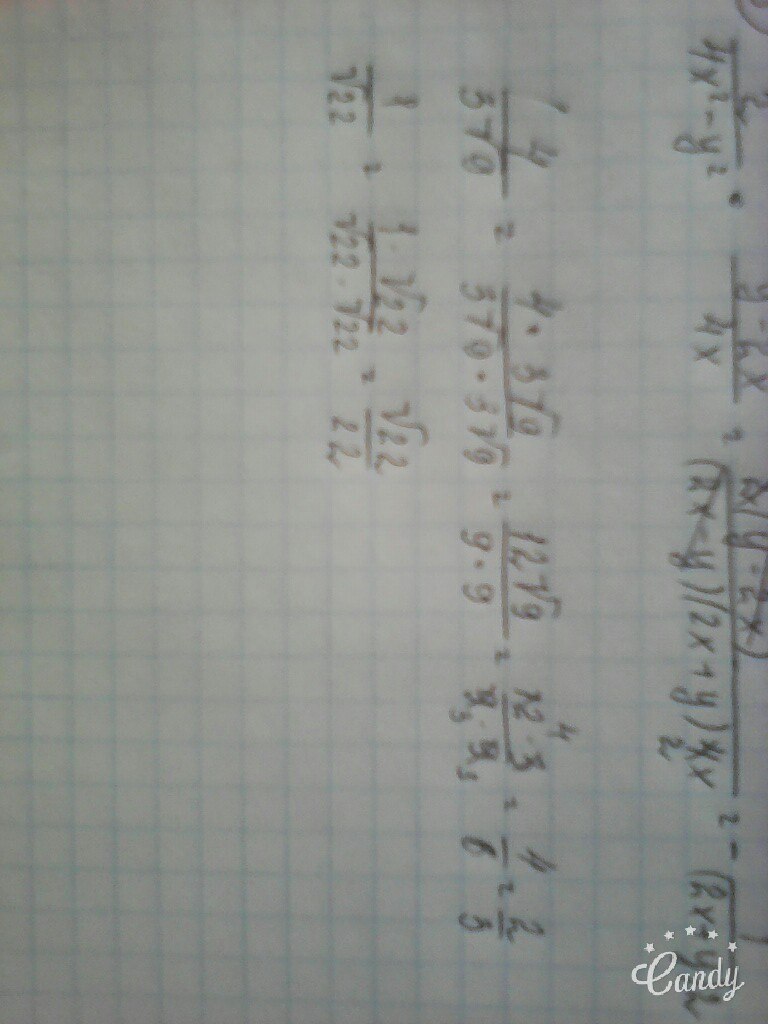 2x/(4x²-y²) · (y-2x)/4x = 2x(y-2x)/((2x-y)(2x+y)4x) 2 = - 1/(2x+y)2
4/(3√9) = (4·3√9)/(3√9·3√9) = 12√9/(9·9) = (12·3)/(9·9) 4 3 3 = 4/6 = 2/3
1/√22 = (1·√22)/(√22·√22) = √22/22
Candy